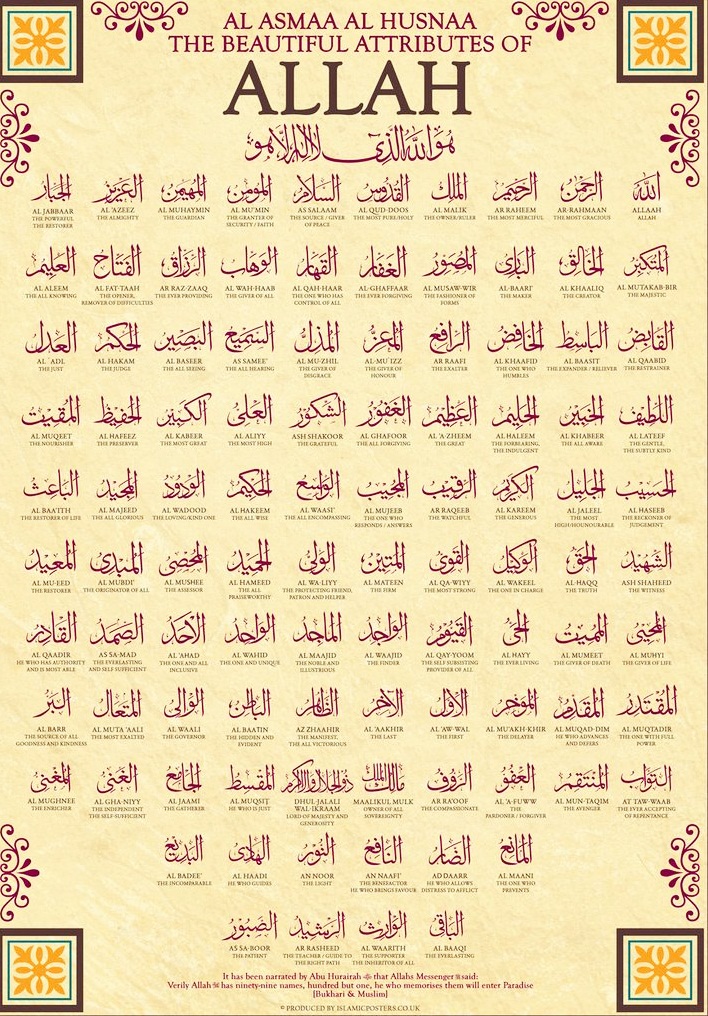 AL ASMAA AL HUSNAA
THE BEAUTIFUL ATTRIBUTES OF
ALLAH
هُوَ اللهُ الَّذِي لَا إِلَهَ إِلَّا هُوَ
الله
ALLAAH
ALLAH
الرحمن
AR-RAHMAAN
THE MOST GRACIOUS
الرحيم
AR RAHEEM
THE MOST MERCIFUL
الملك
AL MALIK
THE OWNER/RULER
القدوس
AL QUD-DOOS
THE MOST PURE/HOLY
السلام
AS SALAAM
THE SOURCE / GIVER
OF PEACE
المؤمن
AL MU'MIN
THE GRANTER OF
SECURITY / FAITH
المهيمن
AL MUHAYMIN
THE GUARDIAN
العزيز
AL 'AZEEZ
THE ALMIGHTY
الجبار
AL JABBAAR
THE POWERFUL
THE RESTORER
المتكبر
AL MUTAKAB-BIR
THE MAJESTIC
الخالق
AL KHAALIQ
THE CREATOR
البارئ
AL-BAARI'
THE MAKER
المصور
AL MUSAW-WIR
THE FASHIONER OF
FORMS
الغفار
AL-GHAFFAAR
THE EVER FORGIVING
القهار
AL QAH-HAAR
THE ONE WHO HAS
CONTROL OF ALL
الوهاب
AL WAH-HAAB
THE GIVER OF ALL
الرزاق
AR RAZ-ZAAQ
THE EVER PROVIDING
الفتاح
AL FAT-TAAH
THE OPENER,
REMOVER OF DIFFICULTIES
العليم
AL ALEEM
THE ALL KNOWING
القابض
AL QAABID
THE RESTRAINER
الباسط
AL BAASIT
THE EXPANDER / RELIEVER
الخافض
AL KHAAFID
THE ONE WHO
HUMBLES
الرافع
AR RAAFI
THE EXALTER
المعز
AL-MU`IZZ
THE GIVER OF
HONOUR
المذل
AL MU-ZHIL
THE GIVER OF
DISGRACE
السميع
AS SAMEE'
THE ALL HEARING
البصير
AL BASEER
THE ALL SEEING
الحكم
AL HAKAM
THE JUDGE
العدل
AL `ADL
THE JUST
اللطيف
AL LATEEF
THE GENTLE,
THE SUBTLY KIND
الخبير
AL KHABEER
THE ALL AWARE
الحليم
AL HALEEM
THE FORBEARING,
THE INDULGENT
العظيم
AL 'A-ZHEEM
THE GREAT
الغفور
AL GHAFOOR
THE ALL FORGIVING
الشكور
ASH SHAKOOR
THE GRATEFUL
العلي
AL ALIYY
THE MOST HIGH
الكبير
AL KABEER
THE MOST GREAT
الحفيظ
AL HAFEEZ
THE PRESERVER
المقيت
AL MUQEET
THE NOURISHER
الحسيب
AL HASEEB
THE RECKONER OF
JUDGEMENT
الجليل
AL JALEEL
THE MOST
HIGH/HOUNOURABLE
الكريم
AL KAREEM
THE GENEROUS
الرقيب
AR RAQEEB
THE WATCHFUL
المجيب
AL MUJEEB
THE ONE WHO
RESPONDS / ANSWERS
الواسع
AL WAASI'
THE ALL ENCOMPASSING
الحكيم
AL HAKEEM
THE ALL WISE
الودود
AL WADOOD
THE LOVING/KIND ONE
المجيد
AL MAJEED
THE ALL-GLORIOUS
الباعث
AL BAA'ITH
THE RESTORER OF LIFE
الشهيد
ASH SHAHEED
THE WITNESS
الحق
AL-HAQQ
THE TRUTH
الوكيل
AL WAKEEL
THE ONE IN CHARGE
القوي
AL QA-WIYY
THE MOST STRONG
المتين
AL MATEEN
THE FIRM
الولي
AL WA-LIYY
THE PROTECTING FRIEND,
PATRON AND HELPER
الحميد
AL HAMEED
THE ALL
PRAISEWORTHY
المحصي
AL MUSHEE
THE ASSESSOR
المبدئ
AL MUBDI'
THE ORIGINATOR OF ALL
المعيد
AL MU-EED
THE RESTORER
المحيي
AL MUHYI
THE GIVER OF LIFE
المميت
AL MUMEET
THE GIVER OF DEATH
الحي
AL HAYY
THE EVER LIVING
القيوم
AL QAY-YOOM
THE SELF SUBSISTING
PROVIDER OF ALL
الواجد
AL WAAJID
THE FINDER
الماجد
AL MAAJID
THE NOBLE AND
ILLUSTRIOUS
الواحد
AL WAHID
THE ONE AND UNIQUE
الأحد
AL 'AHAD
THE ONE AND ALL
INCLUSIVE
الصمد
AS SA-MAD
THE EVERLASTING
AND SELF-SUFFICIENT
القادر
AL QAADIR
HE WHO HAS AUTHORITY
AND IS MOST ABLE
المقتدر
AL MUQTADIR
THE ONE WITH FULL
POWER
المقدم
AL MUQAD-DIM
HE WHO ADVANCES
AND DEFERS
المؤخر
AL MU'AKH-KHIR
THE DELAYER
الأول
AL 'AW-WAL
THE FIRST
الآخر
AL 'AAKHIR
THE LAST
الظاهر
AZ ZHAAHIR
THE MANIFEST,
THE ALL VICTORIOUS
الباطن
AL BAATIN
THE HIDDEN AND
EVIDENT
الوالي
AL WAALI
THE GOVERNOR
المتعال
AL MUTA 'AALI
THE MOST EXALTED
البر
AL BARR
THE SOURCE OF ALL
GOODNESS AND KINDNESS
التواب
AT TAW-WAAB
THE EVER ACCEPTING
OF REPENTANCE
المنتقم
AL MUN-TAQIM
THE AVENGER
العفو
AL 'A-FUWW
THE
PARDONER / FORGIVER
الرؤوف
AR RA'OOF
THE COMPASSIONATE
مالك الملك
MAALIKUL MULK
OWNER OF ALL
SOVEREIGNTY
ذو الجلال والإكرام
DHUL-JALALI
WAL-IKRAAM
LORD OF MAJESTY AND
GENEROSITY
المقسط
AL MUQSIT
HE WHO IS JUST
الجامع
AL JAAMI
THE GATHERER
الغني
AL GHA-NIYY
THE INDEPENDENT
THE SELF-SUFFICIENT
المغني
AL MUGHNEE
THE ENRICHER
المانع
AL MAANI
THE ONE WHO
PREVENTS
الضار
AD DAARR
HE WHO ALLOWS
DISTRESS TO AFFLICT
النافع
AN NAAFI'
THE BENEFACTOR
HE WHO BRINGS FAVOUR
النور
AN NOOR
THE LIGHT
الهادي
AL HAADI
HE WHO GUIDES
البديع
AL BADEE'
THE INCOMPARABLE
الباقي
AL BAAQI
THE EVERLASTING
الوارث
AL WAARITH
THE SUPPORTER
THE INHERITOR OF ALL
الرشيد
AR RASHEED
THE TEACHER / GUIDE TO
THE RIGHT PATH
الصبور
AS SA-BOOR
THE PATIENT
It has been narrated by Abu Hurairah that Allahs Messenger ﷺ said:
Verily Allah has ninety-nine names, hundred but one, he who memorises them will enter Paradise
[Bukhari & Muslim]
© PRODUCED BY ISLAMICPOSTERS.CO.UK